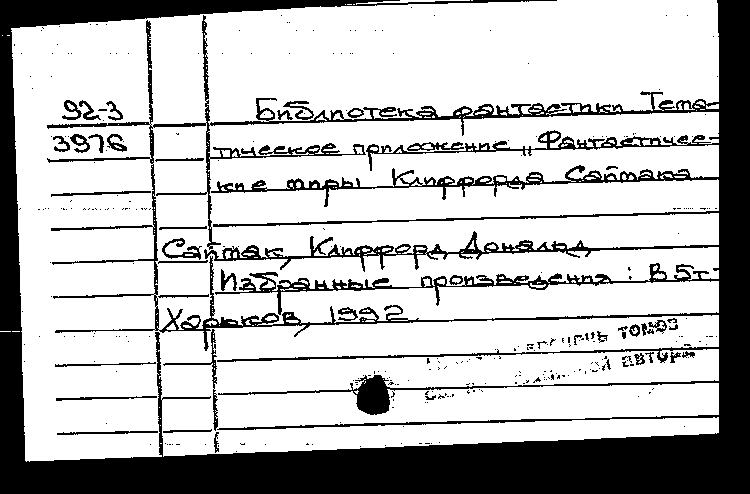 92-3 Библиотека фантастики Тема-
3976 тическое приложение „Фантастичес-
кие миры Клиффорда Саймака
Саймак, Клиффорд Дональд
Избранные произведения: В 5 т.
Харьков, 1992
томов
автора